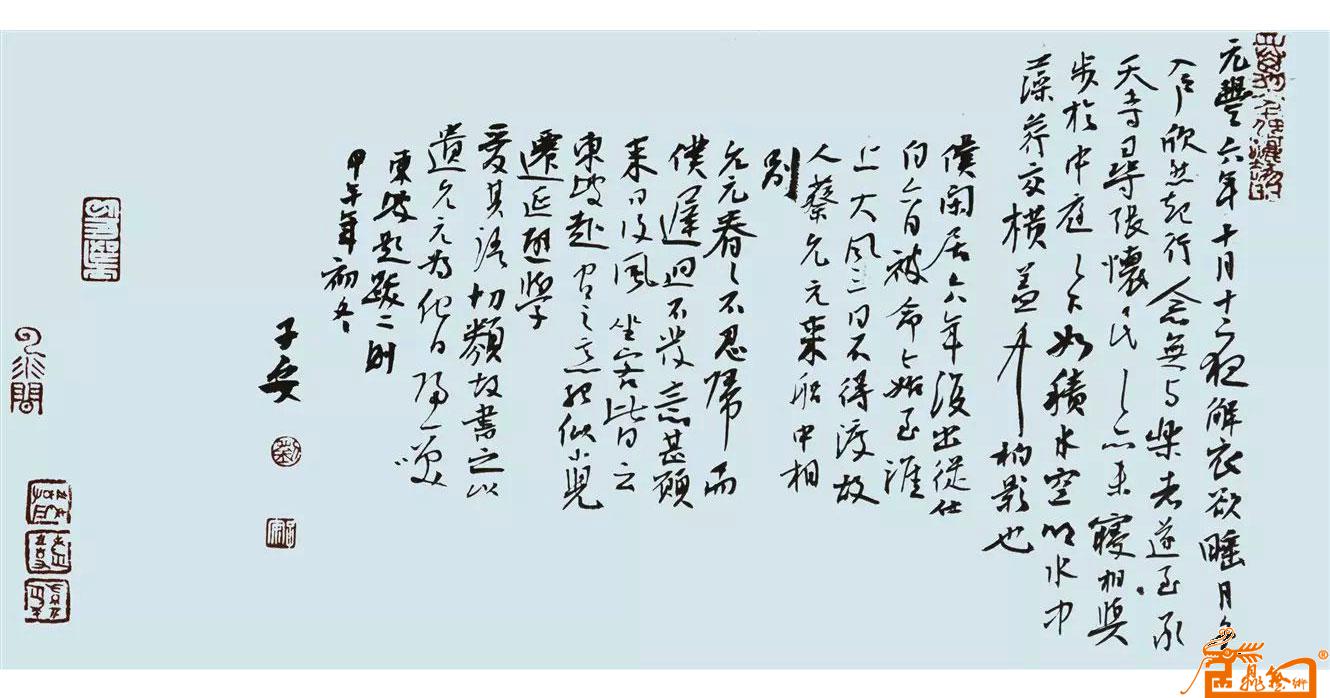 元豐六年十月十二夜解衣欲睡月色
入户欣然起行念無与樂者遂至承
天寺尋張懷民〻亦未寢相與
步於中庭〻下如積水空明水中
藻荇交橫蓋竹
柏影也
僕閑居六年復出從仕
白六月被命今始至淮
上大風三日不得渡故
人蔡允元來船中相
別
允元眷〻不忍歸而
僕遲迴不發意甚願
來日復風坐客皆曰云
東坡赴官之意殆似小兒
遷延避學
愛其語切類故書之以
遺允元為他日歸一笑
東坡題跋二則
甲午年初冬
子安